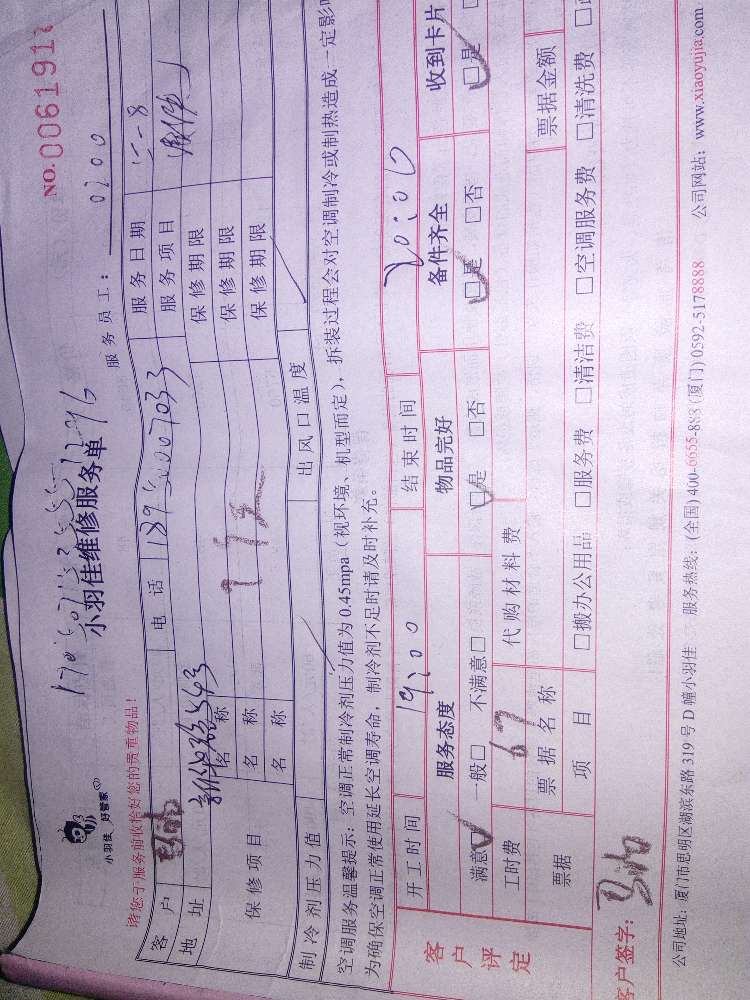 NO.0061917
小羽佳 好管家
小羽佳维修服务单
服务员工: 0200
请您于服务前收恰好您的贵重物品!
客户 电话 服务日期
地址 服务项目
保修项目 名称 保修期限
名称 保修期限
名称 保修期限
制冷剂压力值 出风口温度
空调服务温馨提示:空调正常制冷剂压力值为0.45mpa(视环境、机型而定),拆装过程会对空调制冷或制热造成一定影响
为确保空调正常使用延长空调寿命,制冷剂不足时请及时补充。
客户评定 开工时间 19:00 结束时间 20:06
服务态度 物品完好 备件齐全 收到卡片
满意□ 一般□ 不满意□ □是 □否 □是 □否 □是 □
工时费 67 代购材料费
票据 票据名称 票据金额
项目 □搬办公用品 □服务费 □清洁费 □空调服务费 □清洗费
客户签字:
公司地址:厦门市思明区湖滨东路319号D幢小羽佳 服务热线:(全国)400-6655-888(厦门)0592-5178888 公司网站:www.xiaoyujia.com